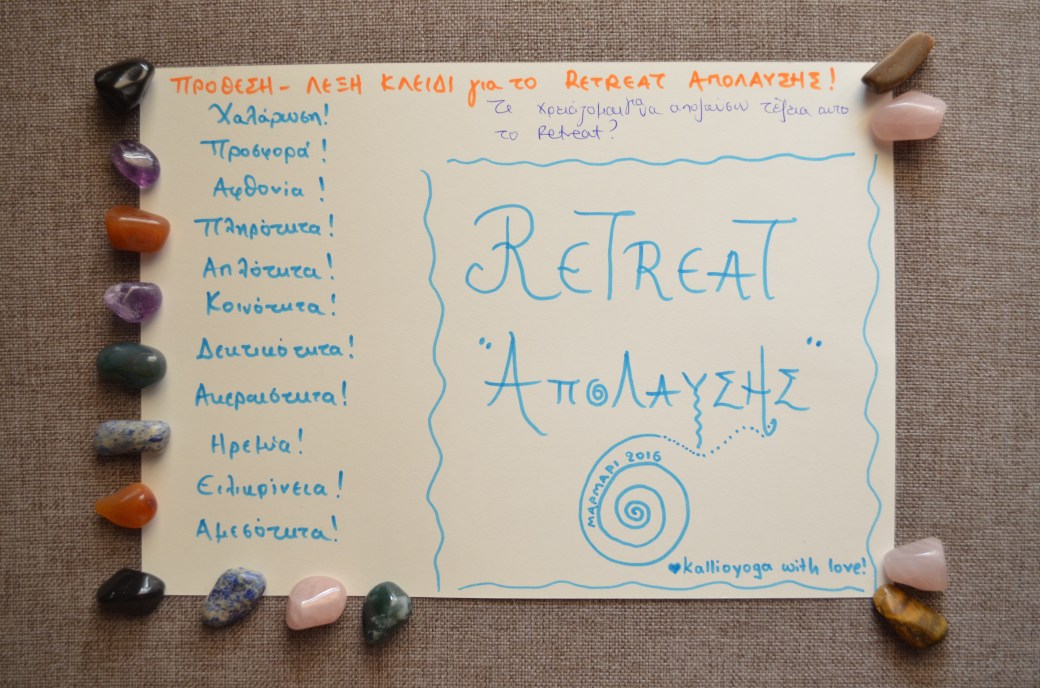 ΠΡΟΘΕΣΗ - ΛΕΞΗ ΚΛΕΙΔΙ για το RETREAT ΑΠΟΛΑΥΣΗΣ!
Τι χρειάζομαι για να απολαύσω τέλεια αυτο
το Retreat?
Χαλάρωση!
Προσφορά!
Αφθονία!
Πληρότητα!
Απλότητα!
Κοινότητα!
Δεκτικότητα!
Ακεραιότητα!
Ηρεμία!
Ειλικρίνεια!
Αμεσότητα!
RETREAT
"ΑΠΟΛΑΥΣΗΣ"
ΜΑΡΜΑΡΙ 2016
♥kallioyoga with love!